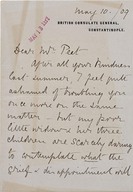 May 10/09
BRITISH CONSULATE GENERAL,
CONSTANTINOPLE.
Dear Mr Peet
After all your kindness
last summer, I feel quite
ashamed of troubling you
once more on the same
matter – but my poor
little widow & her three
children are scarcely daring
to contemplate what the
grief & disappointment will